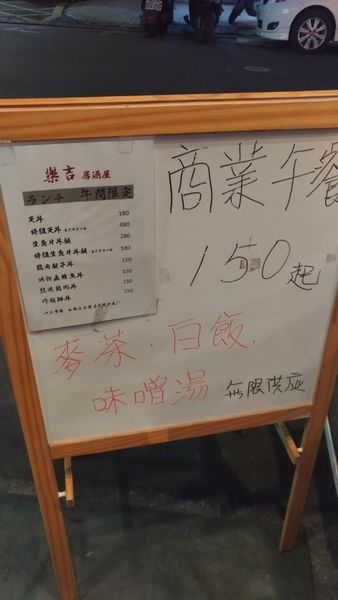 樂吉 居酒屋
ランチ 午間限定
丼 180
特級丼 480
生魚片丼飯 280
特級生魚片丼飯 580
雞肉親子丼 150
鰻魚丼 150
照燒雞肉丼 150
炸豬排丼 150
商業午餐
150起
麥茶、白飯、
味噌湯 無限供应